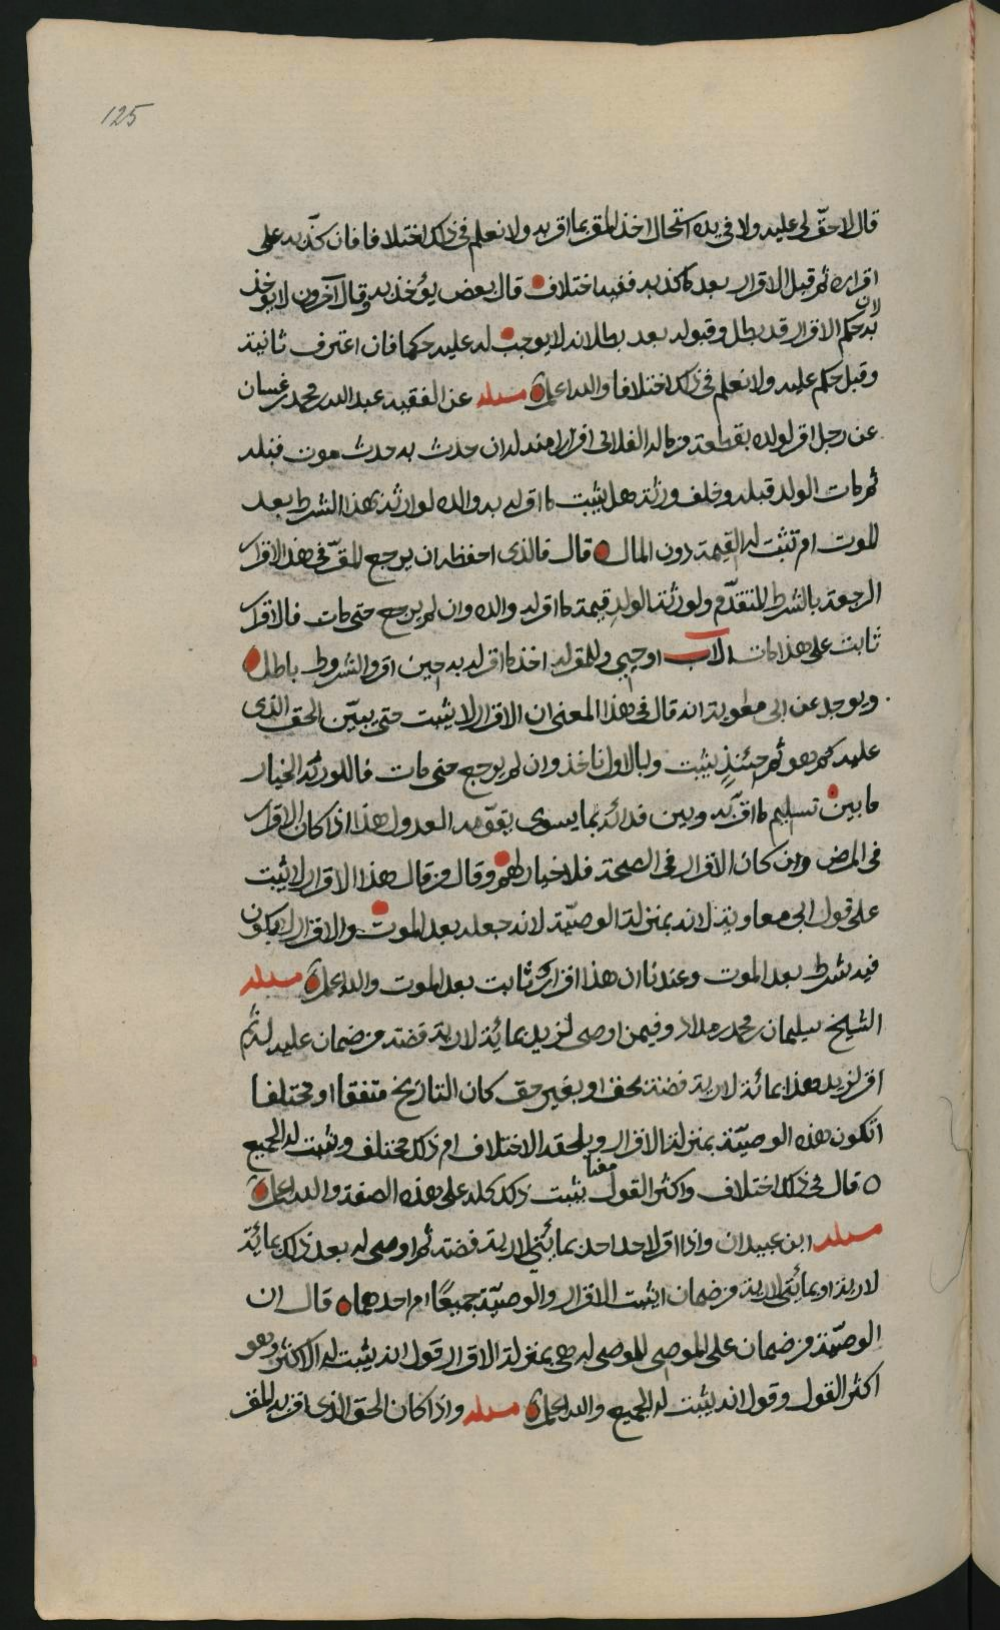 125
قال لا حقّ لي عليه ولا في يده استحال اخذ المقر بما اقر به ولا نعلم في ذلك اختلافا فان كذّبه على
اقراره ثم قبل الاقرار بعد ما كذبه ففيه اختلاف قال بعض يؤخذ به وقال آخرون لا يؤخذ
به لان حكم الاقرار قد بطل وقبوله بعد بطلانه لا يوجب له عليه حكما فان اعترف ثانية
وقبل حكم عليه ولا نعلم في ذلك اختلافا والله اعلم مسئله عن الفقيه عبد الله بن محمد بن غسان
عن رجل اقر لولده بقطعة من ماله الفلاني اقرارا منه له ان حدث به حدث موت قبله
ثم مات الولد قبله وخلف ورثة هل يثبت ما اقر له به والده لوارثه بهذا الشرط بعد
الموت ام تثبت له القيمة دون المال قال فالذي احفظه ان يرجع المقرّ في هذا الاقرار
الرجعة بالشرط المتقدّم ولورثة الولد قيمة ما اقر له والده وان لم يرجع حتى مات فالاقرار
ثابت على هذا مات الاب او حيي وللمقر له اخذ ما اقر له به حين اقر والشروط باطلة
ويوجد عن ابي معوية انه قال في هذا المعنى ان الاقرار لا يثبت حتى يبيّن الحق الذي
عليه كم هو ثم حينئذٍ يثبت وبالاول ناخذ وان لم يرجع حتى مات فاللورثة الخيار
ما بين تسليم ما اقرّ به وبين فدائه بما يسوى بقوّمه العدول هذا اذا كان الاقرار
في المرض وان كان الاقرار في الصحة فلا خيار لهم وقال من قال هذا الاقرار لا يثبت
على قول ابي معاوية لانه بمنزلة الوصيّة لانه جعله بعد الموت والاقرار لا يكون
فيه شرط بعد الموت وعندنا ان هذا اقرار ثابت بعد الموت والله اعلم مسئله
الشيخ سليمان بن محمد بن مداد وفيمن اوصى لزيد بمائة لارية فضة من ضمان عليه له ثم
اقر لزيد هذا بمائة لارية فضة بحق او بغير حق كان التاريخ متفقا او مختلفا
اتكون هذه الوصيّة بمنزلة الاقرار ويلحقه الاختلاف ام ذلك مختلف ويثبت له الجميع
قال في ذلك اختلاف واكثر القول معنا يثبت ذلك كله على هذه الصفة والله اعلم
مسئله ابن عبيدان واذا اقر لاحد احد بمائتي لارية فضة ثم اوصى له بعد ذلك بمائة
لارية او بمائتي لارية من ضمان ايثبت الاقرار والوصيّة جميعًا ام احدهما قال ان
الوصيّة من ضمان على الموصي للموصى له هي بمنزلة الاقرار قول انه يثبت له الاكثر وهو
اكثر القول وقول انه يثبت له الجميع والله اعلم مسئله واذا كان الحق الذي اقر به المقر